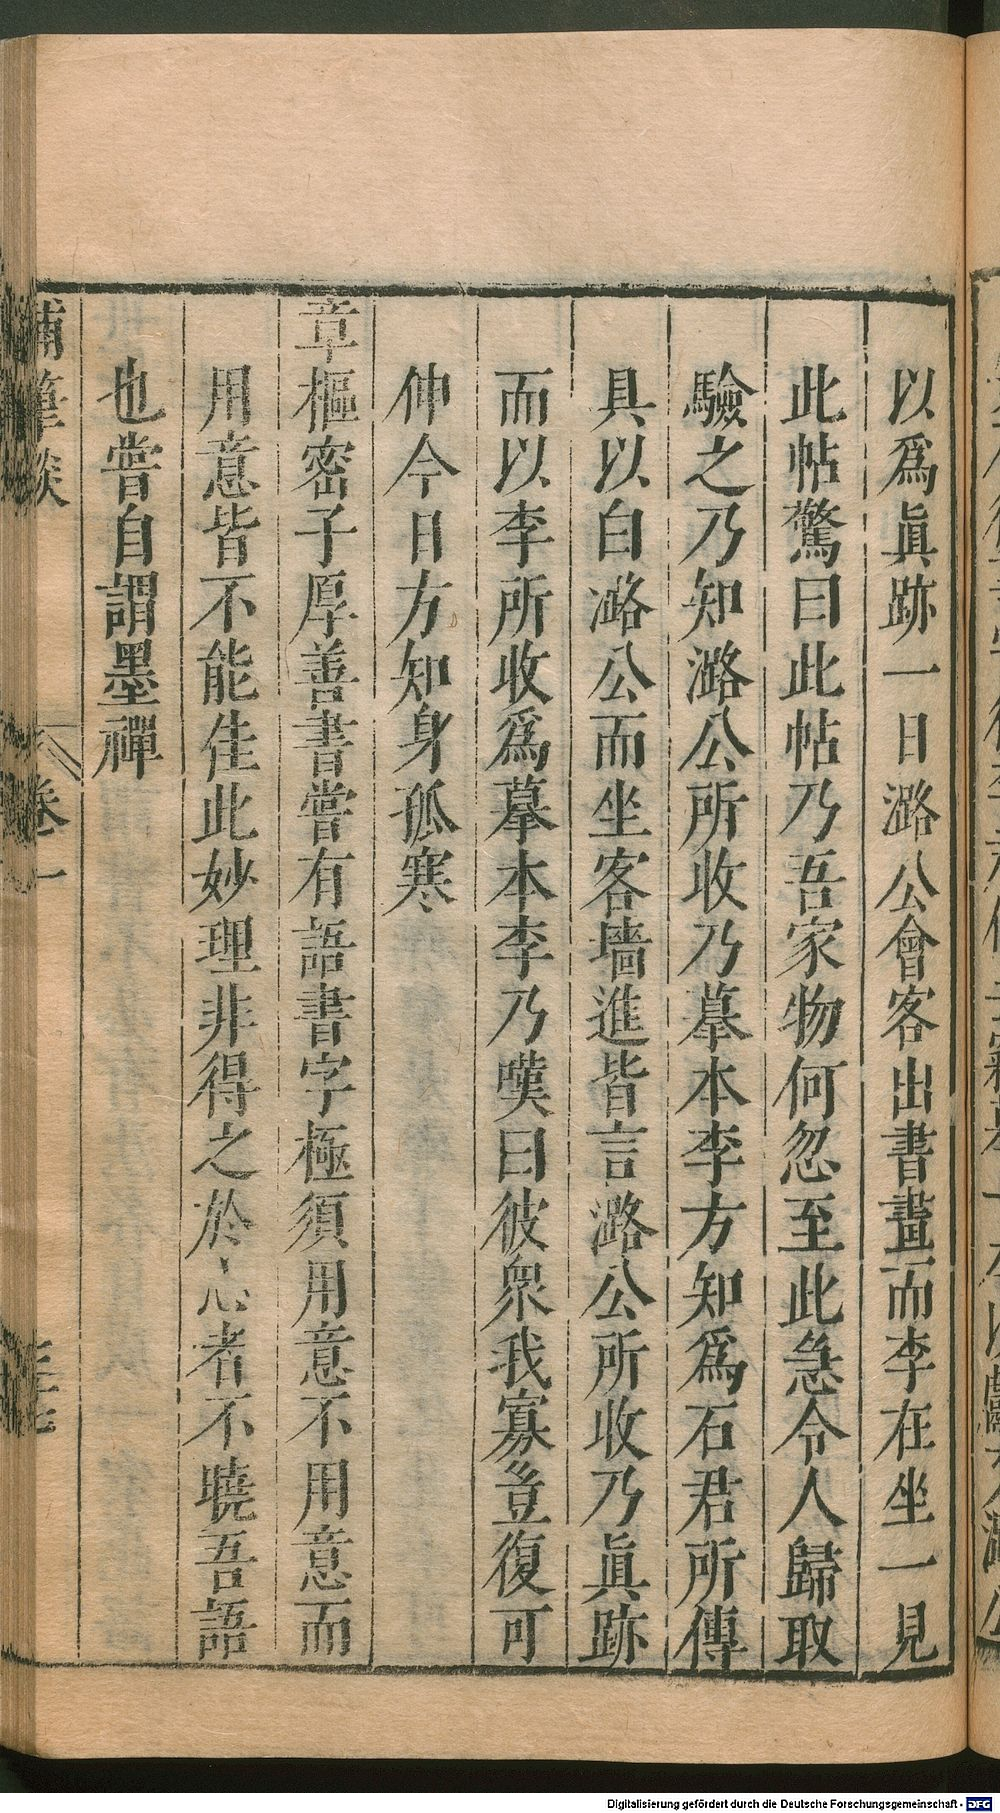 以爲眞跡一日潞公會客出書畫而李在坐一見
此帖驚曰此帖乃吾家物何忽至此急令人歸取
驗之乃知潞公所收乃摹本李方知爲石君所傳
具以白潞公而坐客墻進皆言潞公所收乃眞跡
而以李所收爲摹本李乃嘆曰彼衆我寡豈復可
伸今日方知身孤寒
章樞密子厚善書嘗有語書字極須用意不用意而
用意皆不能佳此妙理非得之於心者不曉吾語
也嘗自謂墨禪
補筆談
卷一
Digitalisierung gefördert durch die Deutsche Forschungsgemeinschaft - DFG